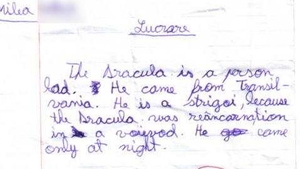 Milea
Lucrare
The Dracula is a person
bad. He came from Transil-
vania. He is a strigoi because
the Dracula was reâncarnation
in a voievod. He came
only at night.